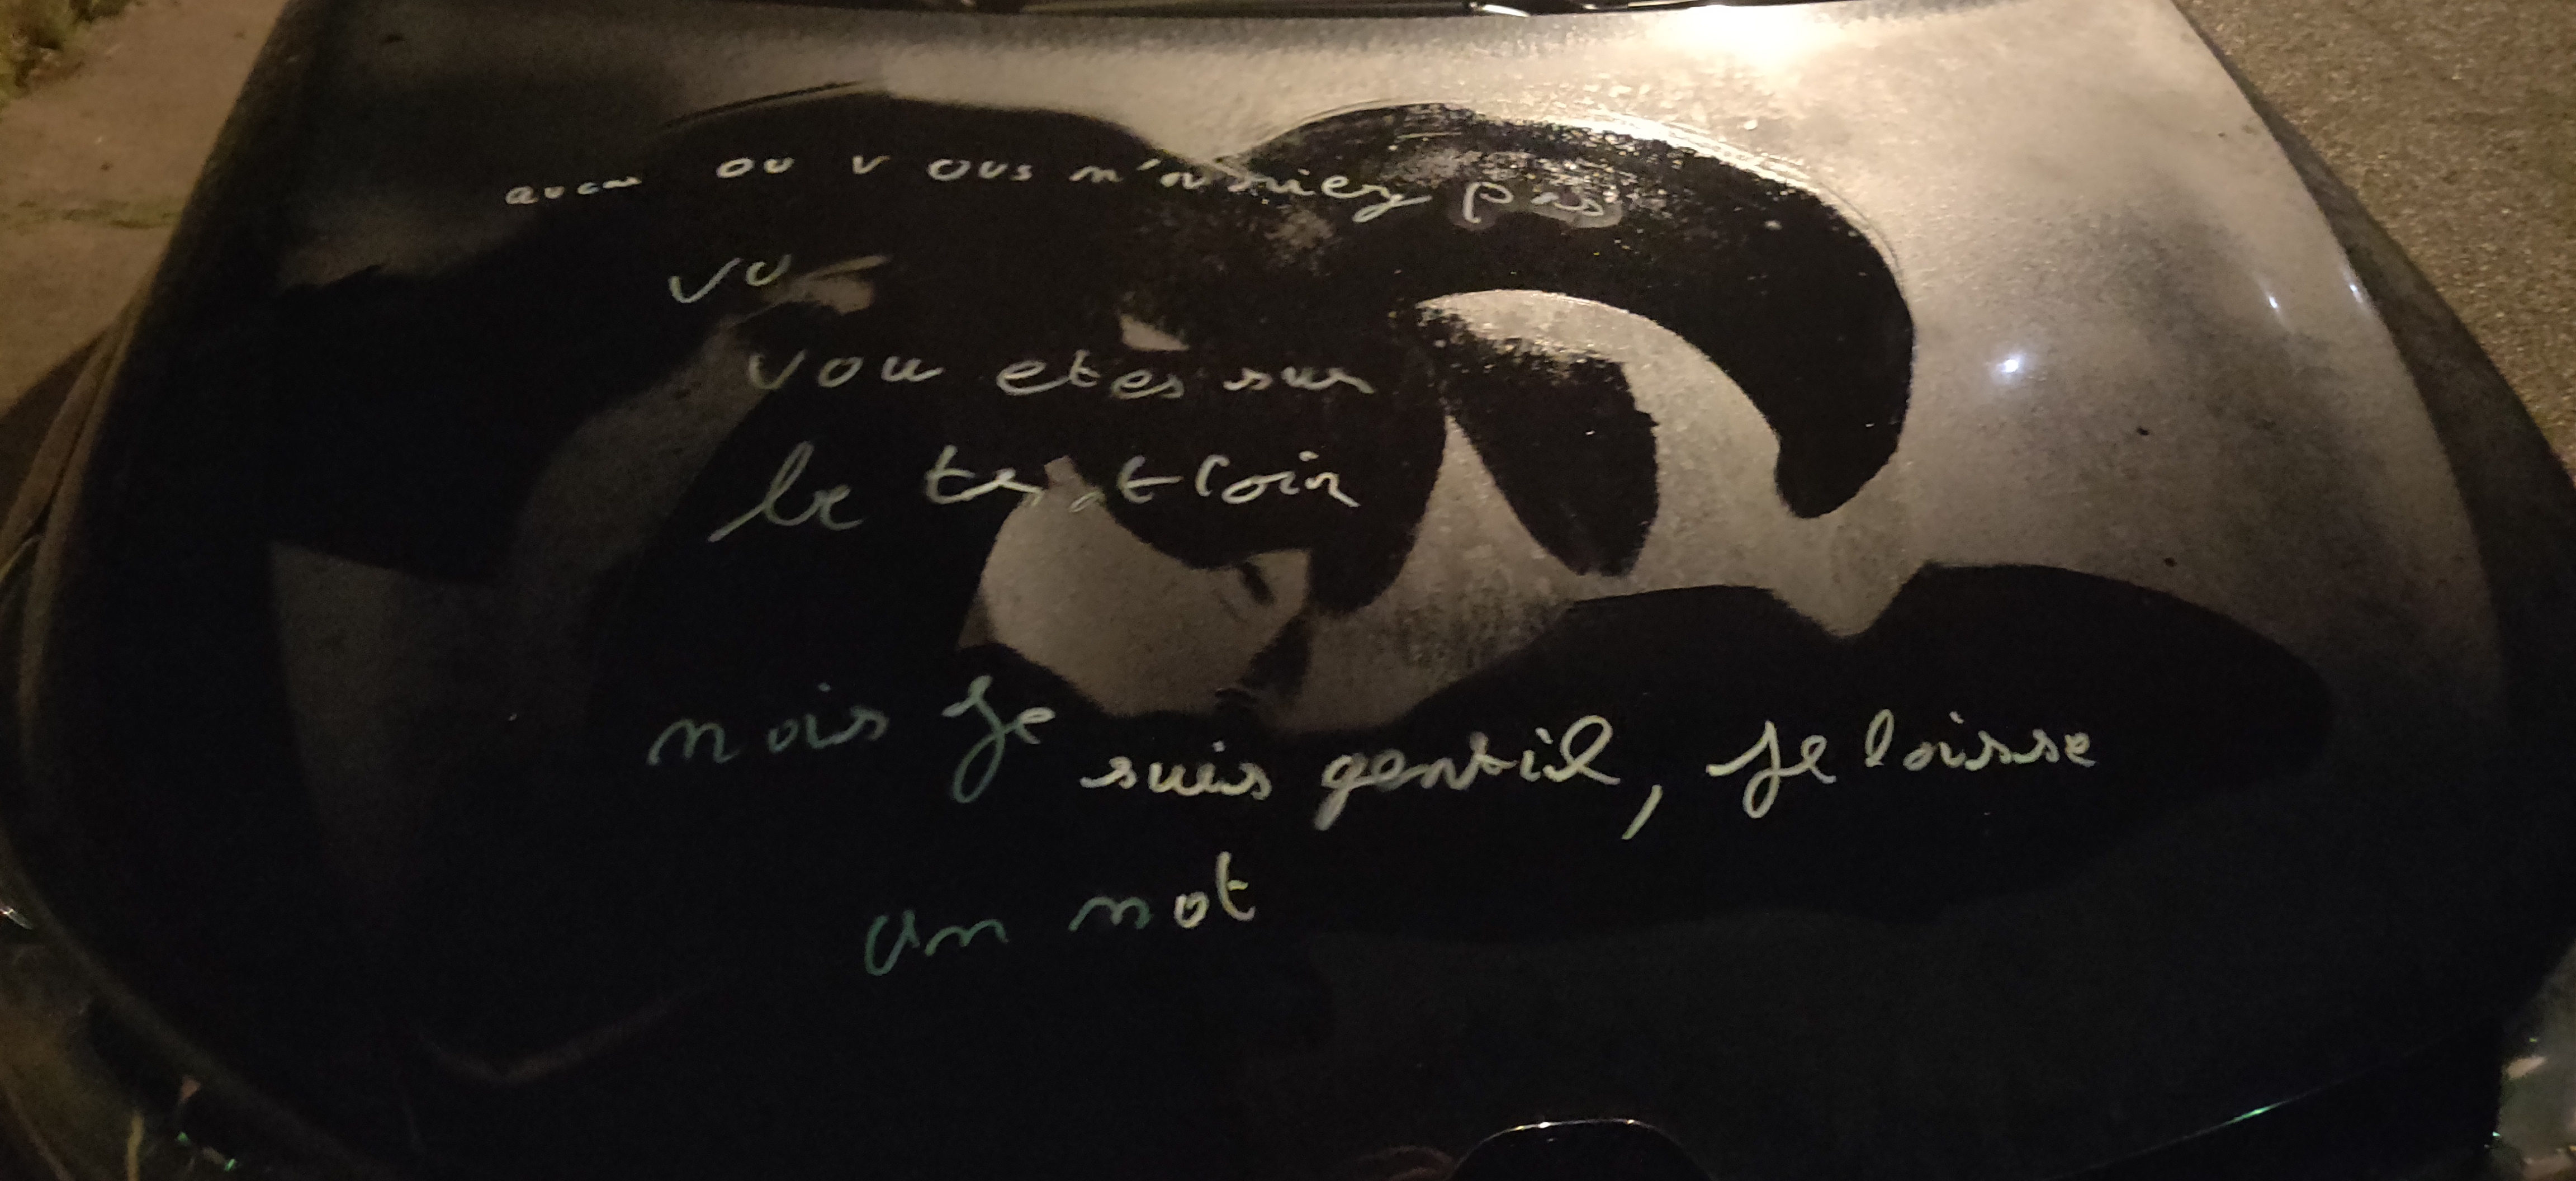 aucas ou vous n'auriez pas
vu
vou etes sur
le trottoir
mais je suis gentil, je laisse
un mot